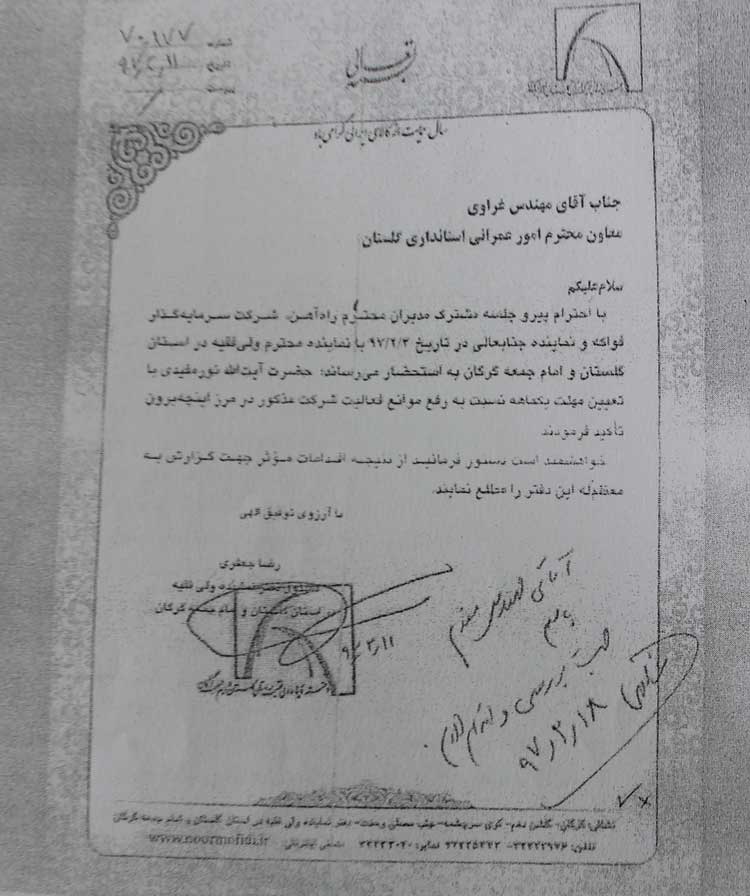 شماره ۷۰۱۷۷
تاریخ ۹۷،۳،۱۱
پیوست
بسمه تعالی
سال حمایت از کالای ایرانی گرامی باد
جناب آقای مهندس غراوی
معاون محترم امور عمرانی استانداری گلستان
سلام علیکم
با احترام پیرو جلسه مشترک مدیران محترم راه‌آهن، شرکت سرمایه‌گذار
فواکه و نماینده جنابعالی در تاریخ ۹۷/۲/۳ با نماینده محترم ولی‌فقیه در استان
گلستان و امام جمعه گرگان به استحضار می‌رساند؛ حضرت آیت‌الله نورمفیدی با
تعیین مهلت یکماهه نسبت به رفع موانع فعالیت شرکت مذکور در مرز اینچه‌برون
تأکید فرمودند
خواهشمند است دستور فرمائید از نتیجه اقدامات مؤثر جهت گزارش به
معظم‌له این دفتر را مطلع نمایند.
با آرزوی توفیق الهی
رضا جعفری
مسئول دفتر نماینده ولی فقیه
در استان گلستان و امام جمعه گرگان
۹۷،۳،۱۱
آقای مهندس
باسلام
جهت بررسی و اقدام لازم.
۹۷،۳،۱۸
نشانی: گرگان- گلشن دهم- کوی سرچشمه- دفتر نماینده ولی فقیه در استان گلستان و امام جمعه گرگان
تلفن: ۳۲۲۲۲۹۷۴- ۳۲۲۲۵۲۲۲ نمابر: ۳۲۲۲۳۰۴۰ نشانی اینترنتی: www.noormofidi.ir